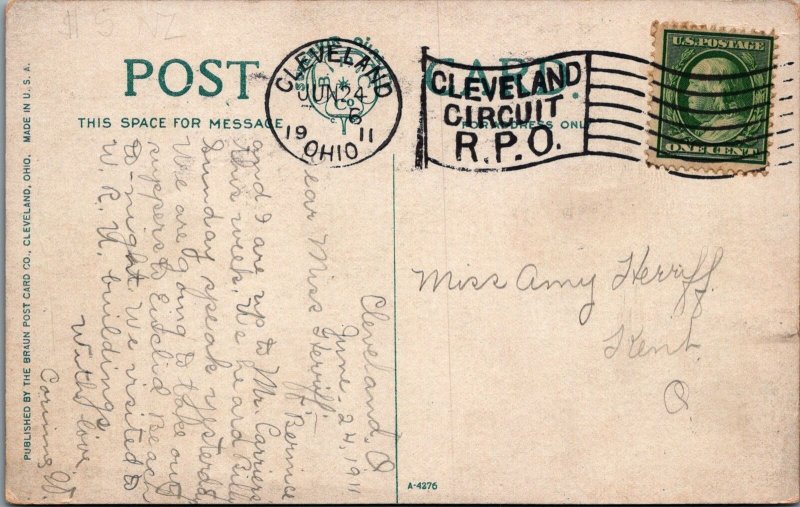 # 5 NZ
POST CARD.
THIS SPACE FOR MESSAGE
FOR ADDRESS ONLY
CLEVELAND
JUN 24
6
19 11
OHIO
CLEVELAND
CIRCUIT
R.P.O.
U.S. POSTAGE
ONE CENT
Cleveland, O
June. 24, 1911
Dear Miss Herriff, Bernice
and I are up to Mr. Carriers
this week. We heard Billy
Sunday speak ysterday
We are going to take our
supper to Euclid Beach
to-night. We visited to
W. R. U. buildings.
With love
Corinne W.
Miss Amy Herriff.
Kent
O
A-4276
PUBLISHED BY THE BRAUN POST CARD CO., CLEVELAND, OHIO. MADE IN U.S.A.